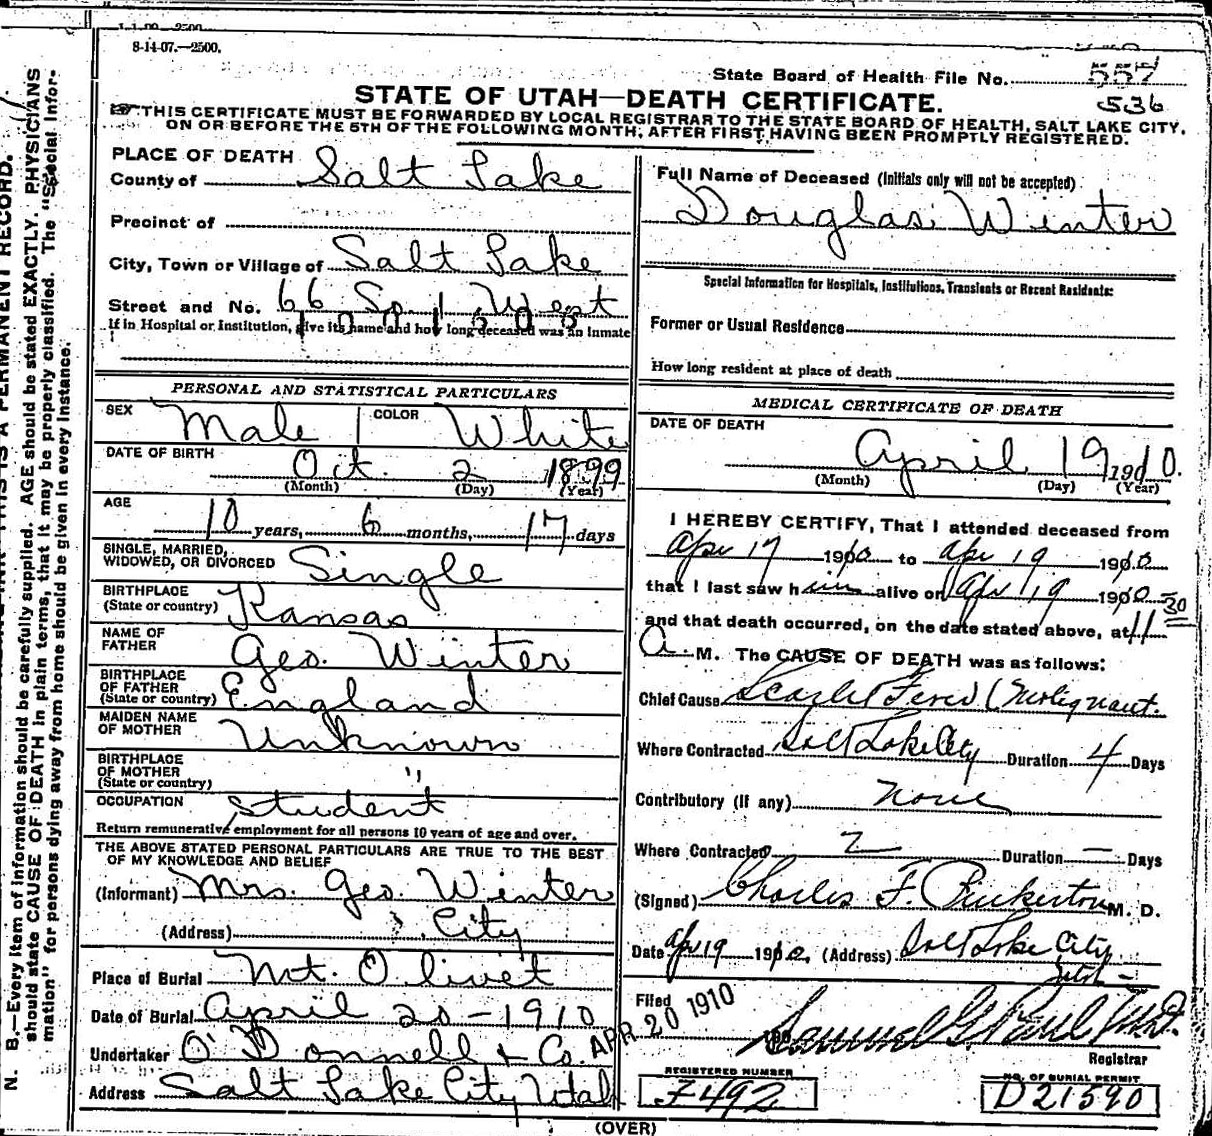 8-14-07.—2500.
State Board of Health File No. 557
536
STATE OF UTAH—DEATH CERTIFICATE.
THIS CERTIFICATE MUST BE FORWARDED BY LOCAL REGISTRAR TO THE STATE BOARD OF HEALTH, SALT LAKE CITY,
ON OR BEFORE THE 5TH OF THE FOLLOWING MONTH, AFTER FIRST HAVING BEEN PROMPTLY REGISTERED.
PLACE OF DEATH
County of Salt Lake
Precinct of
City, Town or Village of Salt Lake
Street and No. 66 So. 1 West
If in Hospital or Institution, give its name and how long deceased was an Inmate
PERSONAL AND STATISTICAL PARTICULARS
SEX Male COLOR White
DATE OF BIRTH Oct. 2 1899
(Month) (Day) (Year)
AGE
10 years, 6 months, 17 days
SINGLE, MARRIED,
WIDOWED, OR DIVORCED Single
BIRTHPLACE
(State or country) Kansas
NAME OF
FATHER Geo. Winter
BIRTHPLACE
OF FATHER
(State or country) England
MAIDEN NAME
OF MOTHER Unknown
BIRTHPLACE
OF MOTHER
(State or country) "
OCCUPATION Student
Return remunerative employment for all persons 10 years of age and over.
THE ABOVE STATED PERSONAL PARTICULARS ARE TRUE TO THE BEST
OF MY KNOWLEDGE AND BELIEF
(Informant) Mrs. Geo. Winter
(Address) City
Place of Burial Mt. Olivet
Date of Burial April 20-1910
Undertaker O'Donnell & Co.
Address Salt Lake City Utah
Full Name of Deceased (Initials only will not be accepted)
Douglas Winter
Special Information for Hospitals, Institutions, Transients or Recent Residents:
Former or Usual Residence
How long resident at place of death
MEDICAL CERTIFICATE OF DEATH
DATE OF DEATH
April 19 1910.
(Month) (Day) (Year)
I HEREBY CERTIFY, That I attended deceased from
Apr 17 1910 to Apr 19 1910
that I last saw him alive on Apr 19 1910
and that death occurred, on the date stated above, at 11 30
A. M. The CAUSE OF DEATH was as follows:
Chief Cause Scarlet Fever (Malignant.
Where Contracted Salt Lake City Duration 4 Days
Contributory (if any) None
Where Contracted Duration — Days
(Signed) Charles F. Pinkerton M. D.
Date Apr 19 1910, (Address) Salt Lake City
Utah -
Filed APR 20 1910
Samuel G. Paul, M.D.
Registrar
REGISTERED NUMBER
NO. OF BURIAL PERMIT
D 21590
(OVER)
N. B.—Every item of information should be carefully supplied. AGE should be stated EXACTLY. PHYSICIANS
should state CAUSE OF DEATH in plain terms, that it may be properly classified. The "Special Infor-
mation" for persons dying away from home should be given in every instance.